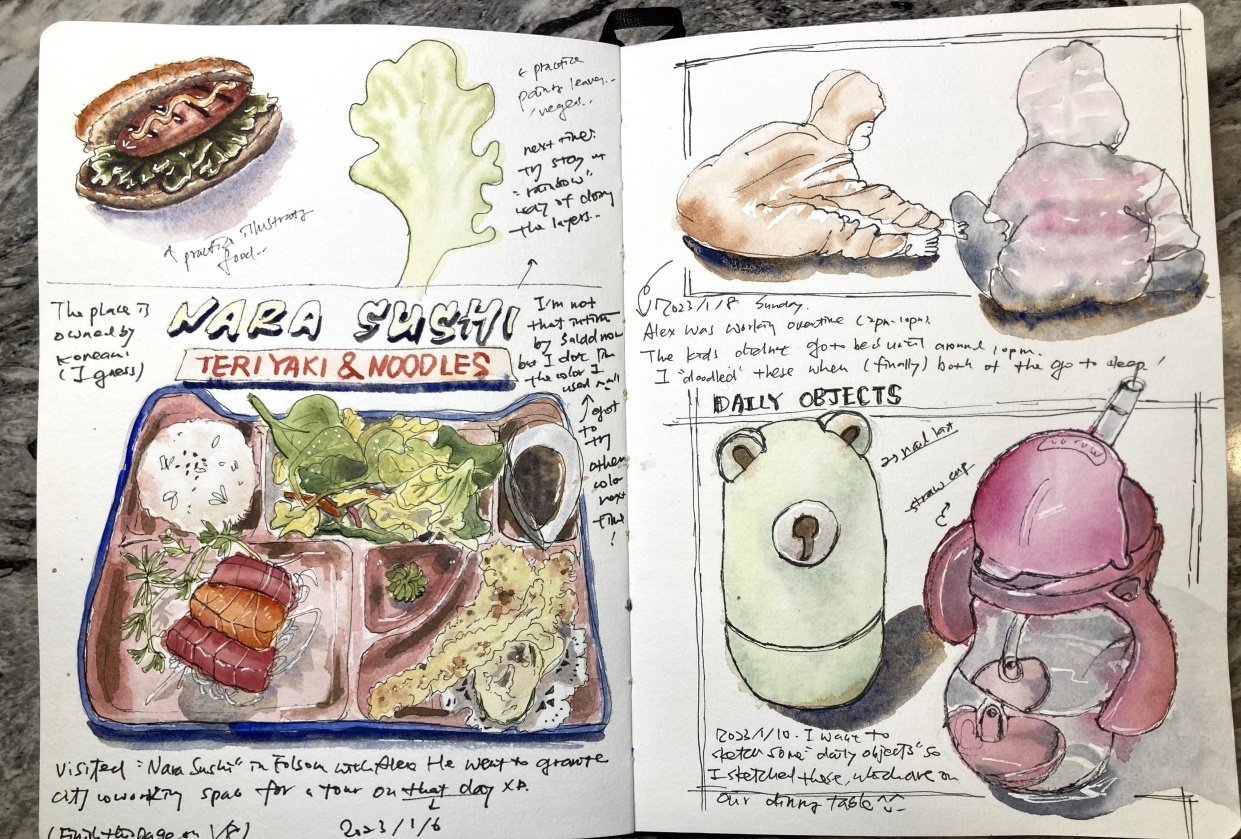 ← practice
leaves..
veges..
next time
try stay w
"rainbow"
way of doing
the layers..
↑ practice illustrating
food..
The place is
owned by
Korean!
(I guess)
NARA SUSHI
TERIYAKI & NOODLES
I'm not
that
by Salad now
but I
the color I
used
↑ got
to
try
other
color
next
time
!
visited "Nara Sushi" in Folsom with Alex He went to granite
city coworking space for a tour on that day XD.
(Finish this page on 1/8) 2023/1/6
2023/1/8 Sunday.
Alex was working overtime (2pm-10pm).
The kids didn't go to bed until around 10pm.
I "doodled" these when (finally) both of the go to sleep!
DAILY OBJECTS
straw cup
2023/1/10. I want to
sketch some "daily objects" so
I sketched these, which are on
our dining table ^^